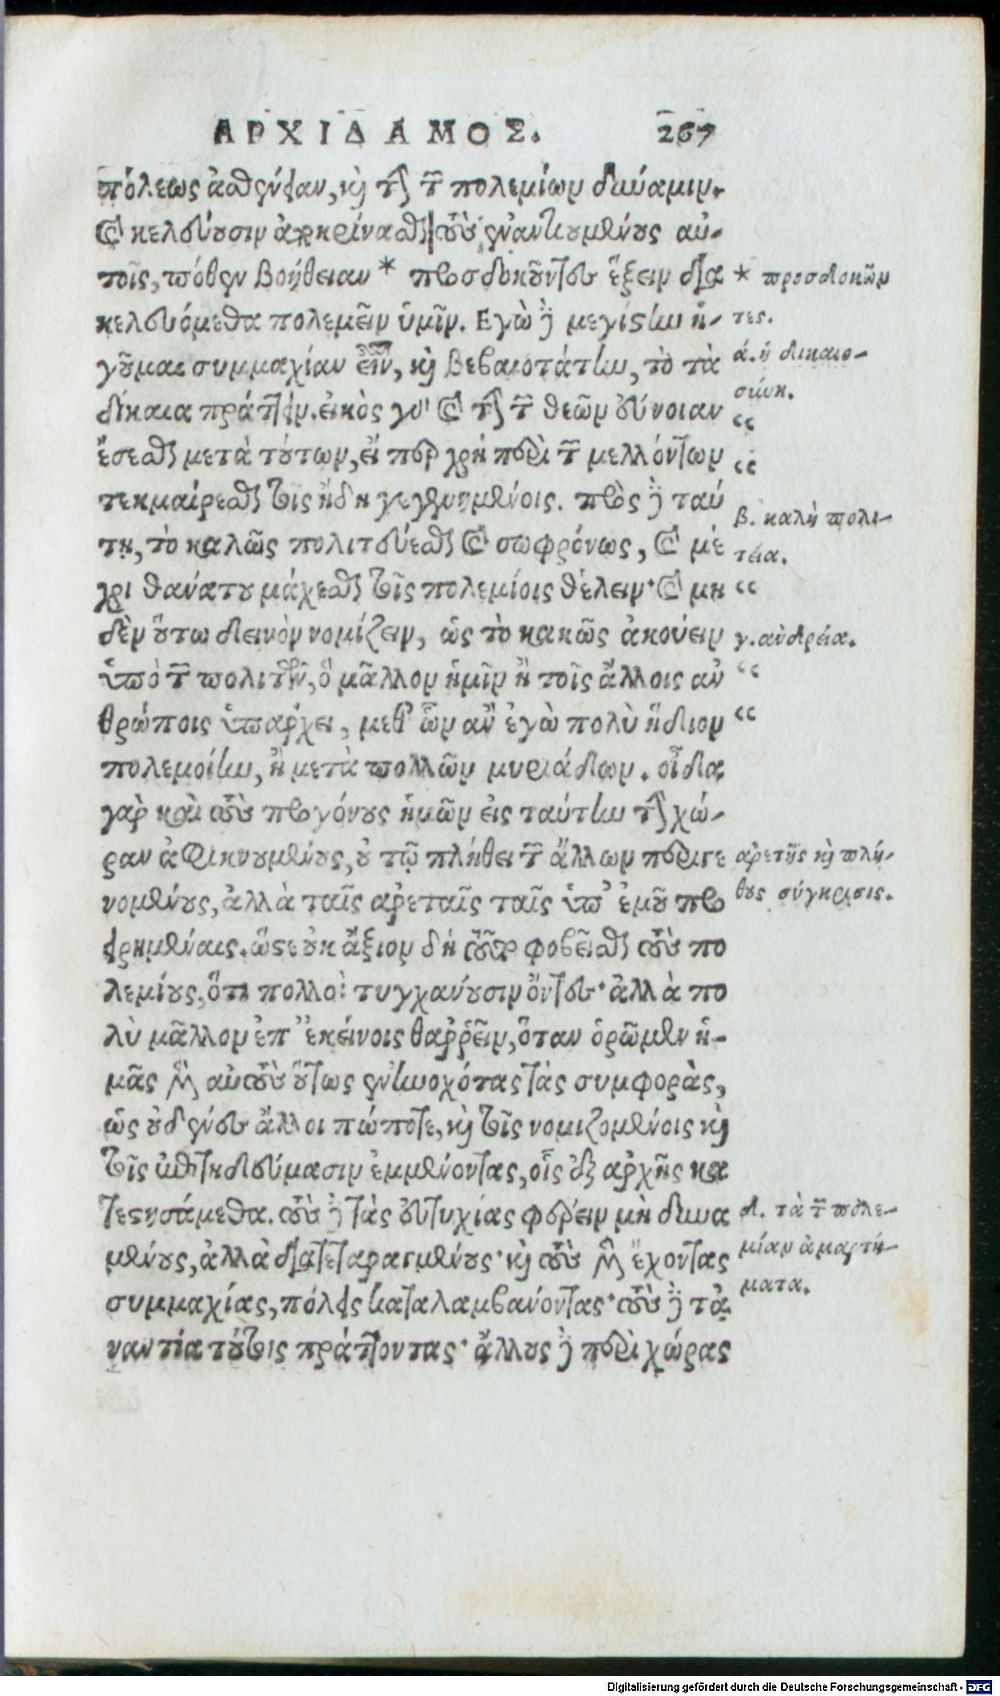 ΑΡΧΙΔΑΜΟΣ. 267
πόλεως ἀσθένειαν, καὶ τὴν τῶν πολεμίων δύναμιν.
καὶ κελεύουσιν ἀποκρίνασθαι τοὺς ἐναντιουμένους αὐ-
τοῖς, πόθεν βοήθειαν * προσδοκοῦντες ἕξειν δια
κελευόμεθα πολεμεῖν ὑμῖν. Εγὼ δὲ μεγίστην ἡ-
γοῦμαι συμμαχίαν εἶναι, καὶ βεβαιοτάτην, τὸ τὰ
δίκαια πράττειν. εἰκὸς γὰρ καὶ τὴν τῶν θεῶν εὔνοιαν
ἔσεσθαι μετὰ τούτων, εἴ περ χρὴ περὶ τῶν μελλόντων
τεκμαίρεσθαι τοῖς ἤδη γεγενημένοις. πρὸς δὲ ταύ
τῃ, τὸ καλῶς πολιτεύεσθαι καὶ σωφρόνως, καὶ μέ
χρι θανάτου μάχεσθαι τοῖς πολεμίοις θέλειν· καὶ μη
δὲν οὕτω δεινὸν νομίζειν, ὡς τὸ κακῶς ἀκούειν
ὑπὸ τῶν πολιτῶν, ὃ μᾶλλον ἡμῖν ἢ τοῖς ἄλλοις ἀν
θρώποις ὑπάρχει, μεθ' ὧν ἂν ἐγὼ πολὺ ἥδιον
πολεμοίην, ἢ μετὰ πολλῶν μυριάδων. οἶδα
γὰρ καὶ τοὺς προγόνους ἡμῶν εἰς ταύτην τὴν χώ-
ραν ἀφικνουμένους, οὐ τῷ πλήθει τῶν ἄλλων περιγε
νομένους, ἀλλὰ ταῖς ἀρεταῖς ταῖς ὑπ' ἐμοῦ προ
ειρημέναις. ὥστε οὐκ ἄξιον διὰ τοῦτο φοβεῖσθαι τοὺς πο
λεμίους, ὅτι πολλοὶ τυγχάνουσιν ὄντες· ἀλλὰ πο
λὺ μᾶλλον ἐπ' ἐκείνοις θαῤῥεῖν, ὅταν ὁρῶμεν ἡ-
μᾶς μὲν αὐτοὺς οὕτως ἐνηνοχότας τὰς συμφορὰς,
ὡς οὐδένες ἄλλοι πώποτε, καὶ τοῖς νομιζομένοις καὶ
τοῖς ἐπιτηδεύμασιν ἐμμένοντας, οἷς ἐξ ἀρχῆς κα
τεστησάμεθα. τοὺς δὲ τὰς εὐτυχίας φέρειν μὴ δυνα
μένους, ἀλλὰ διατεταραγμένους· καὶ τοὺς μὲν ἔχοντας
συμμαχίας, πόλεις καταλαμβάνοντας· τοὺς δὲ τἀ
ναντία τούτοις πράττοντας· ἄλλους δὲ περὶ χώρας
* προσδοκῶν
τες.
ά. ἡ δικαιο-
σύνη.
“
“
β. καλὴ πολι-
τεία.
“
γ. ἀνδρεία.
“
“
ἀρετῆς καὶ πλή-
θους σύγκρισις.
δ. τὰ τῶν πολε-
μίων ἁμαρτή-
ματα.
Digitalisierung gefördert durch die Deutsche Forschungsgemeinschaft - DFG